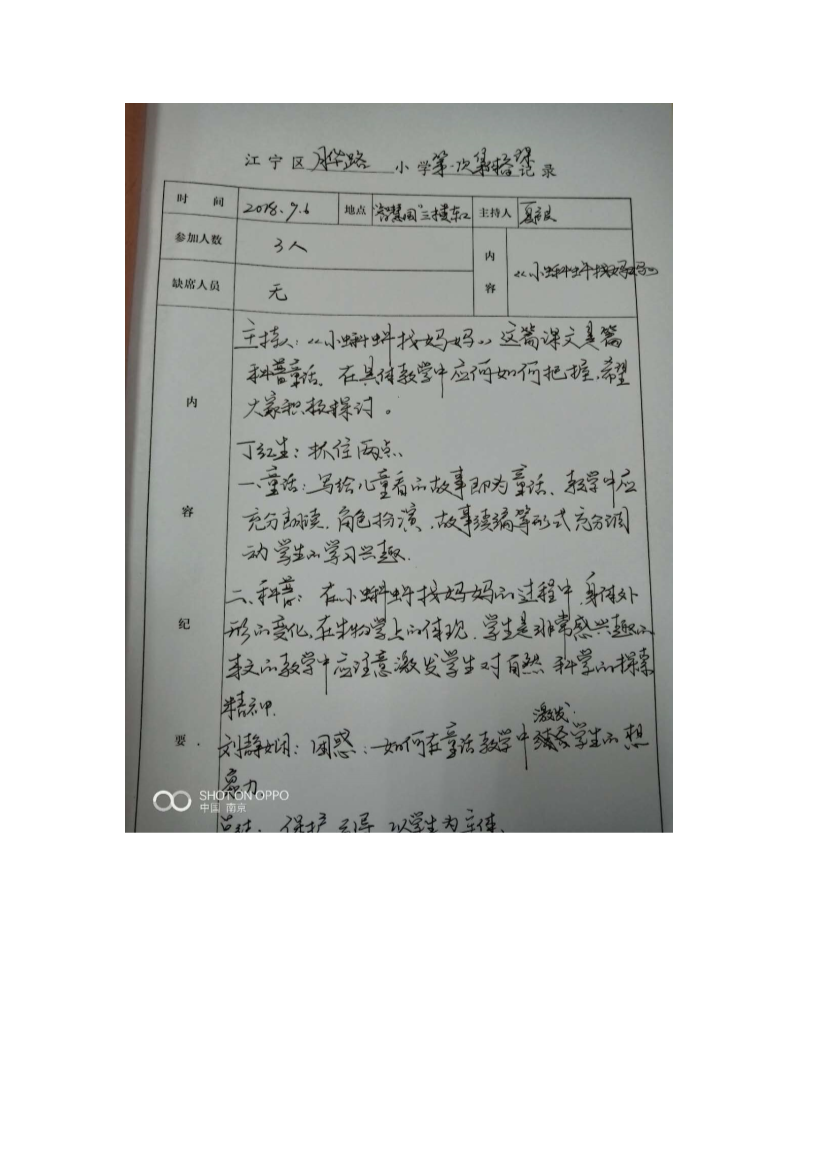 江宁区 月华路 小学第一次集体备课记录
时 间 2018.9.6 地点 “智慧园”三楼东2 主持人
参加人数 3人 内容 《小蝌蚪找妈妈》
缺席人员 无
内容纪要
主持人:《小蝌蚪找妈妈》这篇课文是篇
科普童话,在具体教学中应何如何把握,希望
大家积极探讨。
丁红生:抓住两点
一、童话:写给儿童看的故事即为童话,教学中应
充分朗读,角色扮演,故事续编等形式充分调
动学生的学习兴趣.
二、科普:在小蝌蚪找妈妈的过程中,身体外
形的变化,在生物学上的体现,学生是非常感兴趣的
本文的教学中应注意激发学生对自然科学的探索
精神.
激发
刘静娴:困惑:如何在童话教学中学生的想
象力
SHOT ON OPPO
中国 南京
总结:保护、引导,以学生为主体、